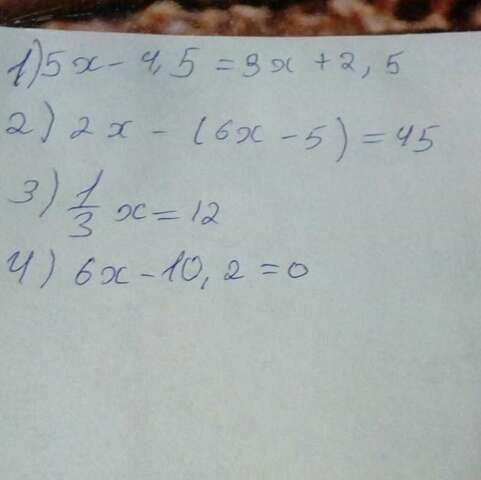 1) 5x - 4,5 = 3x + 2,5
2) 2x - (6x - 5) = 45
3) 1/3 x = 12
4) 6x - 10,2 = 0